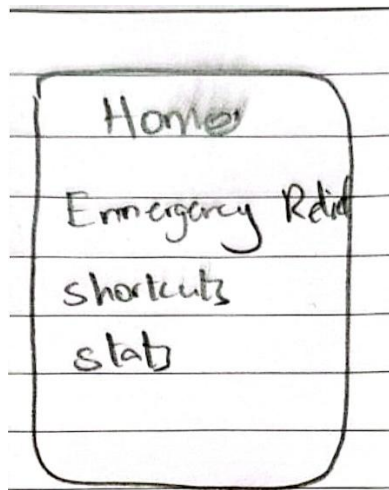 Home
Emergency Relief
shortcuts
stats